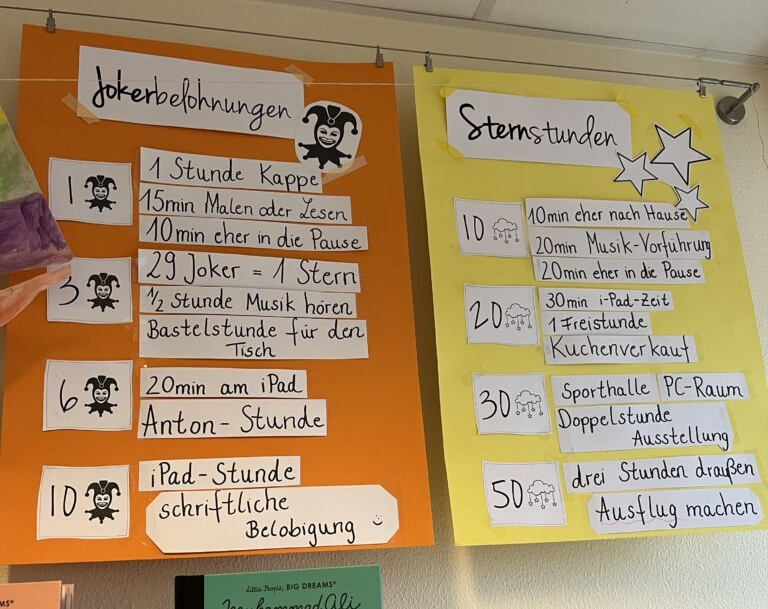 Jokerbelohnungen
1
1 Stunde Kappe
15min Malen oder Lesen
10min eher in die Pause
3
29 Joker = 1 Stern
1/2 Stunde Musik hören
Bastelstunde für den
Tisch
6
20min am iPad
Anton-Stunde
10
iPad-Stunde
schriftliche
Belobigung
Sternstunden
10
10min eher nach Hause
20min Musik-Vorführung
20min eher in die Pause
20
30min i-Pad-Zeit
1 Freistunde
Kuchenverkauf
30
Sporthalle PC-Raum
Doppelstunde
Ausstellung
50
drei Stunden draußen
Ausflug machen
MS®
Little People, BIG DREAMS®
Muhammad Ali